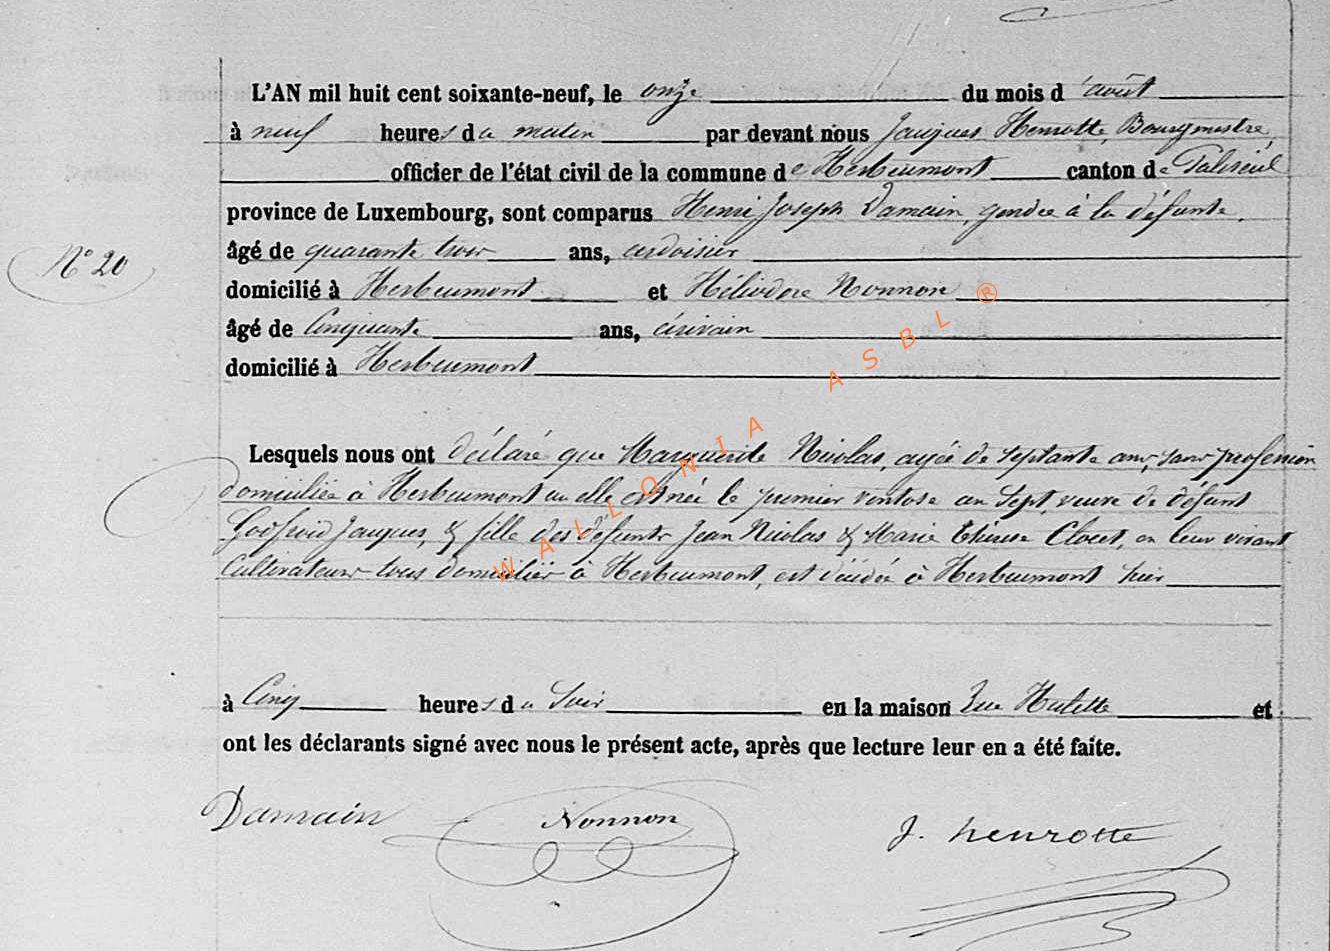 L'AN mil huit cent soixante-neuf, le onze du mois d'août
à neuf heures du matin par devant nous Jacques Henrotte, Bourgmestre,
officier de l'état civil de la commune de Herbeumont canton de Paliseul
province de Luxembourg, sont comparus Henri Joseph Damain, gendre à la défunte,
N° 20
âgé de quarante trois ans, ardoisier
domicilié à Herbeumont et Héliodore Nonnon
âgé de Cinquante ans, écrivain
domicilié à Herbeumont
Lesquels nous ont déclaré que Marguerite Nicolas, agée de septante ans, sans profession
domiciliée à Herbeumont où elle est née le premier ventose an Sept, veuve de défunt
Godfroid Jacques, & fille des défunts Jean Nicolas & Marie Thérèse Clocet, en leur vivant
Cultivateurs tous domiciliés à Herbeumont, est décédée à Herbeumont hier
à Cinq heures du Soir en la maison Rue Hulette et
ont les déclarants signé avec nous le présent acte, après que lecture leur en a été faite.
Damain Nonnon J. henrotte
WALLONIA ASBL ®